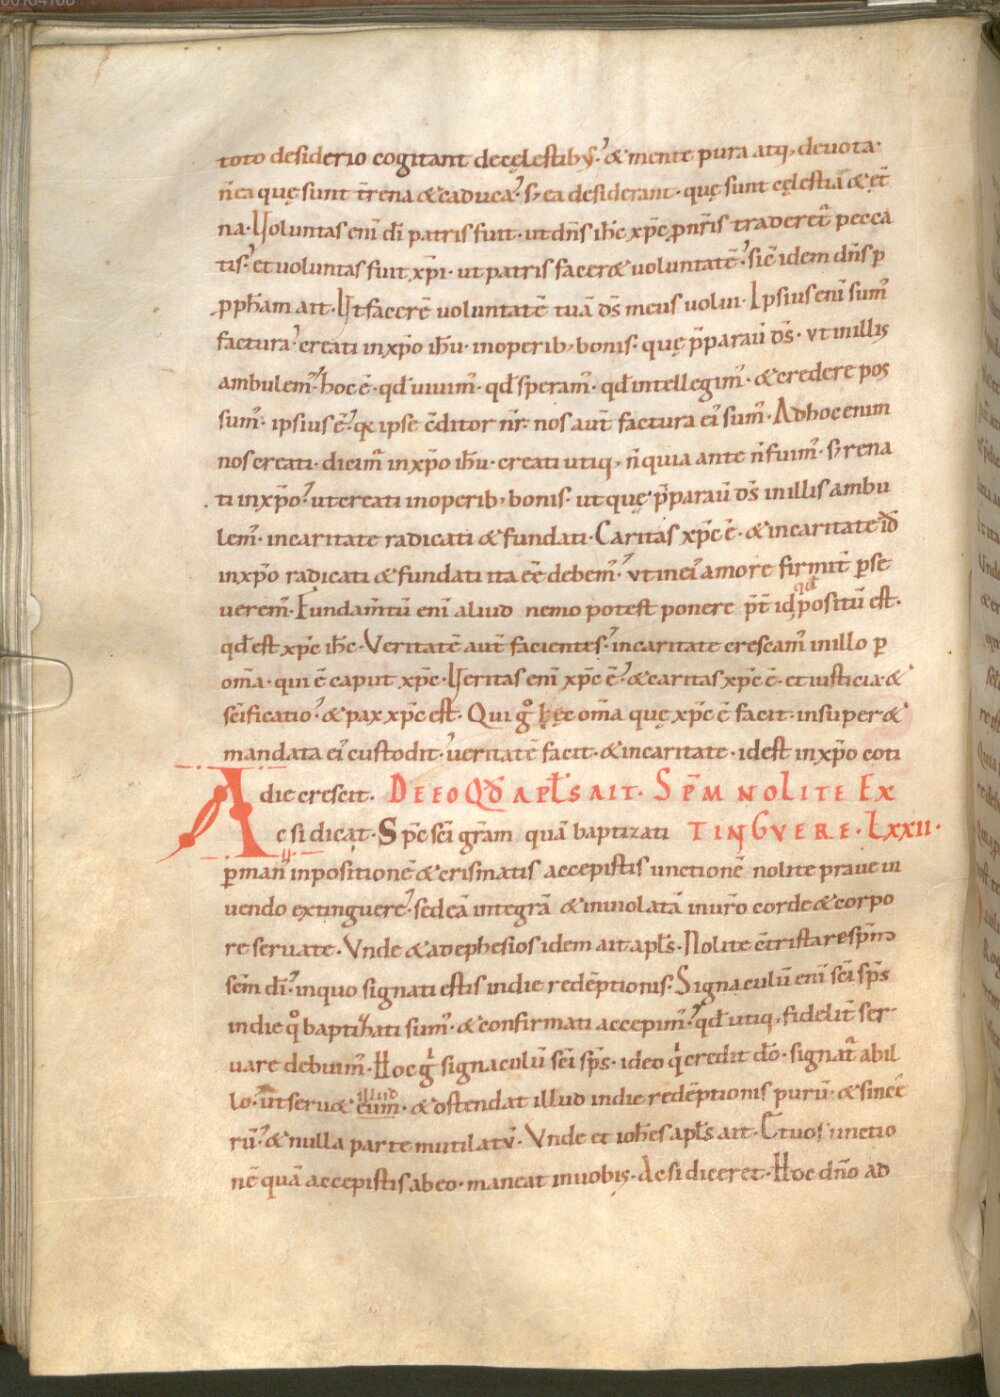 toto desiderio cogitant de cęlestib; & mente pura atq; deuota·
n̄ ea quę sunt t̄rena & caduca? s; ea desiderant· quę sunt cęlestia & et̄
na· Voluntas enī dī patris fuit· ut dn̄s ih̄c xp̄c p̄ nr̄is traderet᷑ pecca
tis? et uoluntas fuit xp̄i· ut patris facer& uoluntatē? sic̄ idem dn̄s p̄
pph̄am ait· Ut facerē uoluntatē tuā ds̄ meus uolui· Ipsius enī sum᷒
factura? creati in xp̄o ih̄u· in operib; bonis· quę p̄parauī ds̄· ut in illis
ambulem᷒? hoc ē· qd̄ uiuim᷒· qd̄ speram᷒· qd̄ intellegim᷒· & credere pos
sum᷒· ipsius ē? q̄ ipse c̄ditor nr̄· nos aut̄ factura ei᷒ sum᷒· Ad hoc enim
nos creati· dicim᷒ in xp̄o ih̄u· creati utiq; n̄ quia ante n̄ fuim᷒· s; rena
ti in xp̄o? ut creati in operib; bonis· ut quę p̄parauī ds̄ in illis ambu
lem᷒· in caritate radicati & fundati· Caritas xp̄c ē· & in caritate id̄
in xp̄o radicati & fundati ita eē debem᷒? ut in ei᷒ amore firmit̄ p̄se
uerem᷒· Fundam̄tū enī aliud nemo potest ponere p̄t id qd̄ positū est·
qd̄ est xp̄c ih̄c· Veritatē aut̄ facientes? in caritate crescam᷒ in illo p̄
om̄a· qui ē caput xp̄c· Veritas enī xp̄c ē? & caritas xp̄c ē· et iusticia &
sc̄ificatio? & pax xp̄c est· Qui g̊ hęc om̄a quę xp̄c ē facit· insuper &
mandata ei᷒ custodit? ueritatē facit· & in caritate· id est in xp̄o coti
die crescit. DE EO QD̄ APL̄S AIT· SP̄M NOLITE EX
Ac si dicat· Sp̄c sc̄i gr̄am quā baptizati TINGVERE· LXXII·
p̄ man᷒ inpositionē & crismatis accepistis unctionē nolite praue ui
uendo extinguere? sed eā integrā & inuiolatā in ur̄o corde & corpo
re seruate· Vnde & ad ephesios idem ait apl̄s· Nolite c̄tristare sp̄m
sc̄m dī? in quo signati estis in die redēptionis· Signaculū enī sc̄i sp̄s
in die qͦ baptizati sum᷒· & confirmati accepim᷒? qd̄ utiq; fidelit̄ ser
uare debuim᷒· Hoc g̊ signaculū sc̄i sp̄s· ideo qͥ credit dō· signat᷑ ab il
lo· ut seru& eum illud· & ostendat illud in die redēptionis purū· & sincē
rū? & nulla parte mutilatū· Vnde et ioh̄es apl̄s ait· Et uos unctio
nē quā accepistis ab eo· maneat in uobis· Ac si diceret· Hoc dn̄o ad